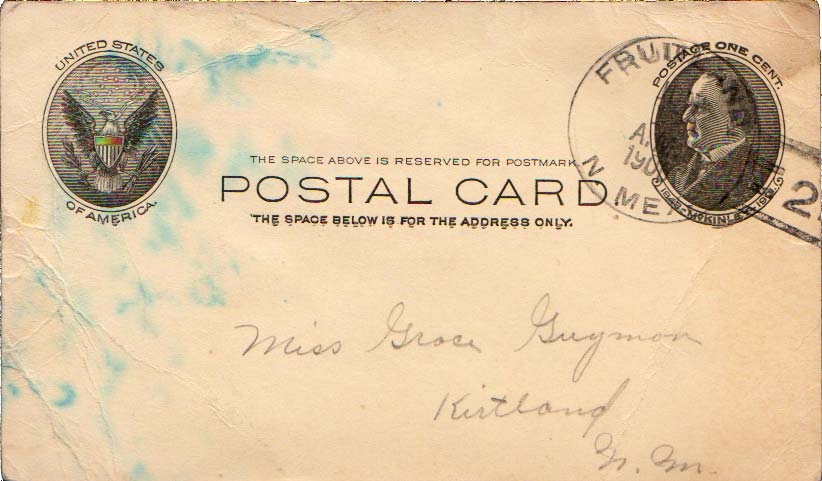 UNITED STATES
OF AMERICA.
POSTAGE ONE CENT.
1843-McKINLEY-1901
N MEX
THE SPACE ABOVE IS RESERVED FOR POSTMARK.
POSTAL CARD
THE SPACE BELOW IS FOR THE ADDRESS ONLY.
Miss Grace Guymon
Kirtland
N. M.